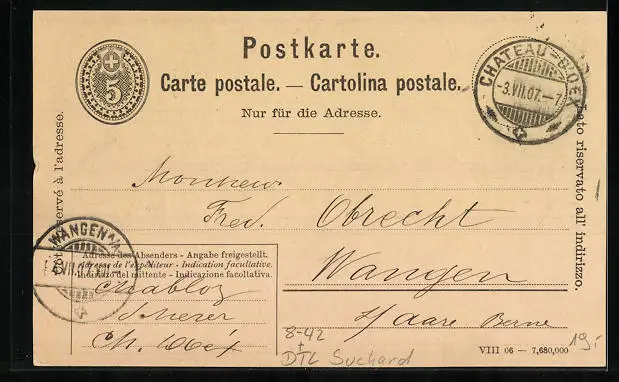 Postkarte.
Carte postale. — Cartolina postale.
Nur für die Adresse.
5
CHATEAU-D'OEX
-3.VII.07.-7
réservé à l'adresse.
Lato riservato all' indirizzo.
Monsieur
Fred. Obrecht
Wangen
s/Aare Berne
WANGEN A/A.
VII.07
Adresse des Absenders - Angabe freigestellt.
Adresse de l'expéditeur - Indication facultative.
Indirizzo del mittente - Indicazione facoltativa.
Chabloz
Scherer
Ch. d'Oéx
8-42
+
DTL Suchard
VIII 06 — 7,680,000
19.-